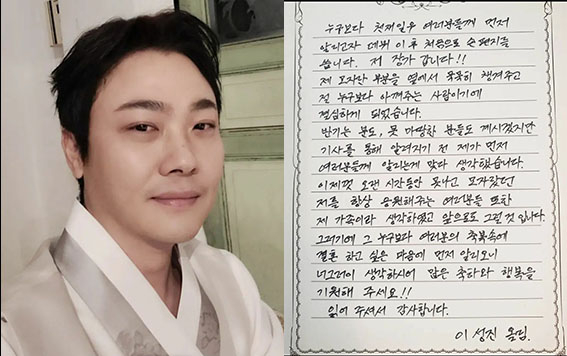 누구보다 천재일우 여러분들께 먼저
알리고자 데뷔 이후 처음으로 손편지를
씁니다. 저 장가 갑니다!!
제 모자란 부분을 옆에서 묵묵히 챙겨주고
절 누구보다 아껴주는 사람이기에
결심하게 되었습니다.
반기는 분도, 못 마땅할 분들도 계시겠지만
기사를 통해 알려지기 전 제가 먼저
여러분들께 알리는게 맞다 생각했습니다.
이제껏 오랜 시간동안 못나고 모자랐던
저를 항상 응원해주는 여러분들 또한
제 가족이라 생각하였고 앞으로도 그럴 것 입니다.
그러기에 그 누구보다 여러분의 축복속에
결혼 하고 싶은 마음에 먼저 알리오니
너그러이 생각하시어 많은 축하와 행복을
기원해 주세요!!
읽어 주셔서 감사합니다.
이성진 올림.